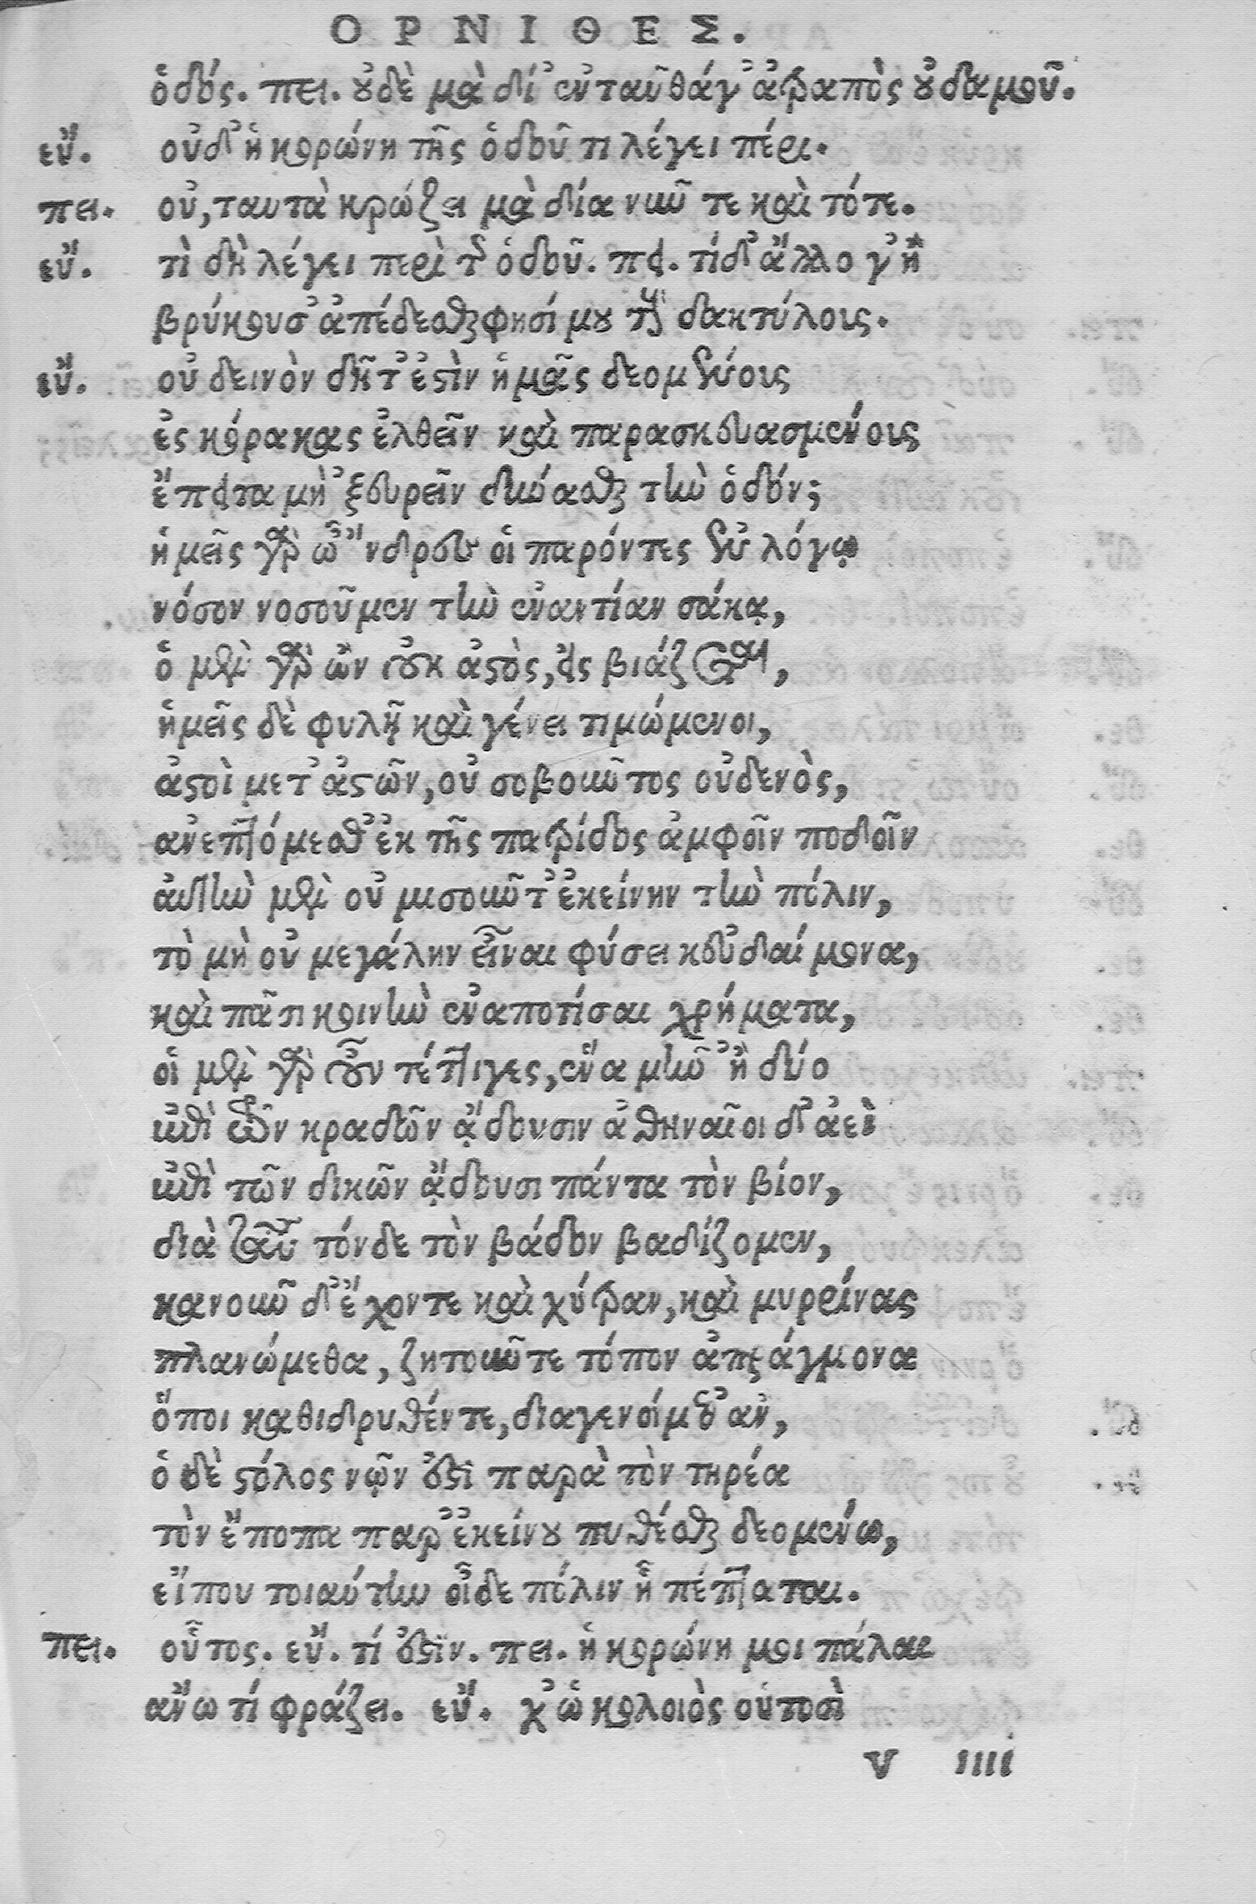 ΟΡΝΙΘΕΣ.
ὁδός. πει. οὐδὲ μὰ δί' ἐνταῦθάγ' ἀτραπὸς οὐδαμοῦ.
εὔ. οὐδ' ἡ κορώνη τῆς ὁδοῦ τι λέγει πέρι.
πει. οὐ, ταυτὰ κρώζει μὰ δία νῦν τε καὶ τότε.
εὔ. τὶ δὴ λέγει περὶ τῆς ὁδοῦ. πει. τίδ' ἄλλο γ' ἢ
βρύκουσ' ἀπέδεσθαι φησί μου τοὺς δακτύλοις.
εὔ. οὐ δεινὸν δῆτ' ἐστὶν ἡμᾶς δεομένοις
ἐς κόρακας ἐλθεῖν καὶ παρασκευασμένοις
ἔπειτα μὴ 'ξευρεῖν δύνασθαι τὴν ὁδόν;
ἡμεῖς γὰρ ὦ 'νδρες οἱ παρόντες ἐν λόγῳ
νόσον νοσοῦμεν τὴν ἐναντίαν σάκᾳ,
ὁ μὲν γὰρ ὢν οὐκ ἀστὸς, εἰς βιάζεται,
ἡμεῖς δὲ φυλῇ καὶ γένει τιμώμενοι,
ἀστοὶ μετ' ἀστῶν, οὐ σοβοῦντος οὐδενὸς,
ἀνεπτόμεσθ' ἐκ τῆς πατρίδος ἀμφοῖν ποδοῖν
αὐτὴν μὲν οὐ μισοῦντ' ἐκείνην τὴν πόλιν,
τὸ μὴ οὐ μεγάλην εἶναι φύσει κεὐδαίμονα,
καὶ πᾶσι κοινὴν ἐναποτίσαι χρήματα,
οἱ μὲν γὰρ οὖν τέττιγες, ἕνα μῆν' ἢ δύο
ἐπὶ τῶν κραδῶν ᾄδουσιν ἀθηναῖοι δ' ἀεὶ
ἐπὶ τῶν δικῶν ᾄδουσι πάντα τὸν βίον,
διὰ ταῦτα τόνδε τὸν βάδον βαδίζομεν,
κανοῦν δ' ἔχοντε καὶ χύτραν, καὶ μυρρίνας
πλανώμεθα, ζητοῦντε τόπον ἀπράγμονα
ὅποι καθιδρυθέντε, διαγενοίμεθ' ἂν,
ὁ δὲ στόλος νῷν ἐστὶ παρὰ τὸν τηρέα
τὸν ἔποπα παρ' ἐκείνου πυθέσθαι δεομένω,
εἴπου τοιαύτην οἶδε πόλιν ᾗ πέπταται.
πει. οὗτος. εὔ. τί ἐστίν. πει. ἡ κορώνη μοι πάλαι
ἄνω τί φράζει. εὔ. χ' ὠ κολοιὸς οὑτοσὶ
V IIII